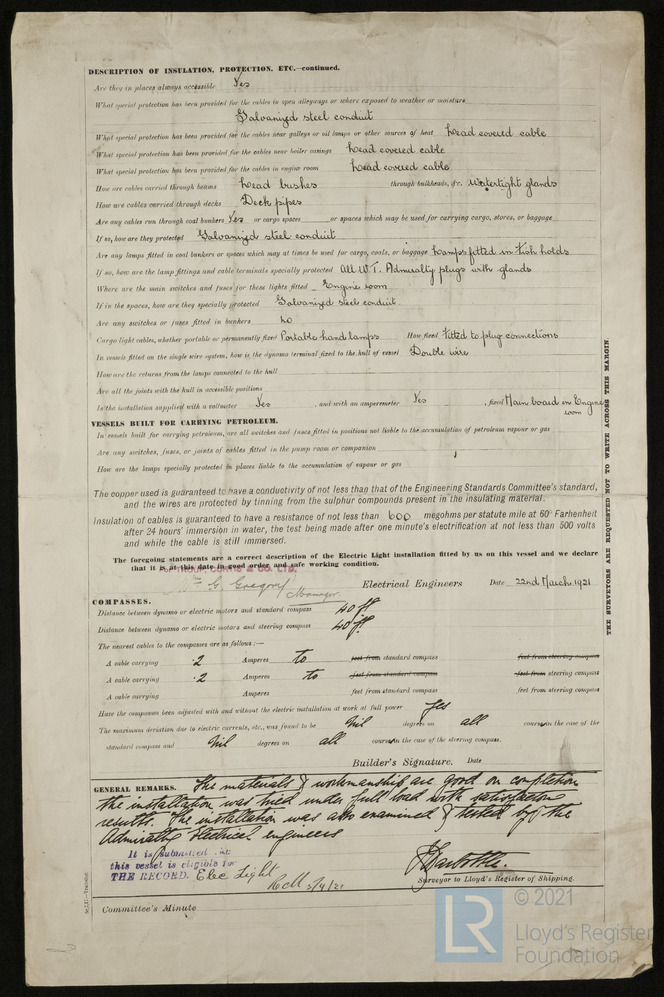 DESCRIPTION OF INSULATION, PROTECTION, ETC.—continued.
Are they in places always accessible Yes
What special protection has been provided for the cables in open alleyways or where exposed to weather or moisture
Galvanized steel conduit
What special protection has been provided for the cables near galleys or oil lamps or other sources of heat Lead covered cable
What special protection has been provided for the cables near boiler casings Lead covered cable
What special protection has been provided for the cables in engine room Lead covered cable
How are cables carried through beams Lead bushes through bulkheads, &c. Watertight glands
How are cables carried through decks Deck pipes
Are any cables run through coal bunkers Yes or cargo spaces or spaces which may be used for carrying cargo, stores, or baggage
If so, how are they protected Galvanized steel conduit
Are any lamps fitted in coal bunkers or spaces which may at times be used for cargo, coals, or baggage Lamps fitted in Fish holds
If so, how are the lamp fittings and cable terminals specially protected All W.T. Admiralty plugs with glands
Where are the main switches and fuses for these lights fitted Engine room
If in the spaces, how are they specially protected Galvanized steel conduit
Are any switches or fuses fitted in bunkers No
Cargo light cables, whether portable or permanently fixed Portable hand lamps How fixed Fitted to plug connections
In vessels fitted on the single wire system, how is the dynamo terminal fixed to the hull of vessel Double wire
How are the returns from the lamps connected to the hull
Are all the joints with the hull in accessible positions
Is the installation supplied with a voltmeter Yes , and with an amperemeter Yes , fixed Main board in Engine
room
VESSELS BUILT FOR CARRYING PETROLEUM.
In vessels built for carrying petroleum, are all switches and fuses fitted in positions not liable to the accumulation of petroleum vapour or gas
Are any switches, fuses, or joints of cables fitted in the pump room or companion
How are the lamps specially protected in places liable to the accumulation of vapour or gas
The copper used is guaranteed to have a conductivity of not less than that of the Engineering Standards Committee's standard,
and the wires are protected by tinning from the sulphur compounds present in the insulating material.
Insulation of cables is guaranteed to have a resistance of not less than 600 megohms per statute mile at 60° Farhenheit
after 24 hours' immersion in water, the test being made after one minute's electrification at not less than 500 volts
and while the cable is still immersed.
The foregoing statements are a correct description of the Electric Light installation fitted by us on this vessel and we declare
that it is at this date in good order and safe working condition.
CURTIS & CO. LTD.
Wm G. Gregory Electrical Engineers Date 22nd March 1921
Manager
COMPASSES.
Distance between dynamo or electric motors and standard compass 40 ft
Distance between dynamo or electric motors and steering compass 40 ft
The nearest cables to the compasses are as follows:—
A cable carrying .2 Amperes to feet from standard compass feet from steering compass
A cable carrying .2 Amperes to feet from standard compass feet from steering compass
A cable carrying Amperes feet from standard compass feet from steering compass
Have the compasses been adjusted with and without the electric installation at work at full power Yes
The maximum deviation due to electric currents, etc., was found to be Nil degrees on all course in the case of the
standard compass and Nil degrees on all course in the case of the steering compass.
Builder's Signature. Date
GENERAL REMARKS. The materials & workmanship are good on completion
the installation was tried under full load with satisfactory
results. The installation was also examined & tested by the
Admiralty Electrical engineers
It is submitted that
this vessel is eligible for
THE RECORD. Elec Light
5/4/21
Surveyor to Lloyd's Register of Shipping.
Committee's Minute
THE SURVEYORS ARE REQUESTED NOT TO WRITE ACROSS THIS MARGIN.
LR
© 2021
Lloyd's Register
Foundation